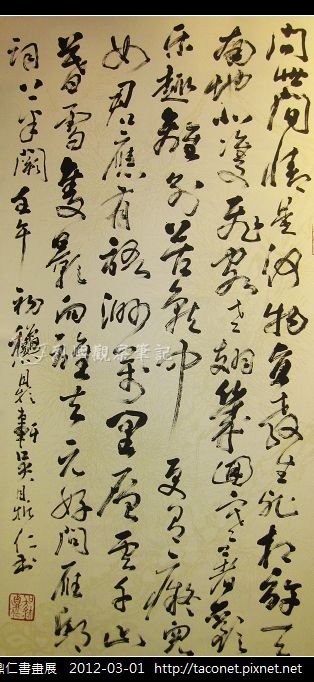 問世間情是何物直教生死相許天
南地北雙飛客老翅幾回寒暑歡
樂趣離別苦就中更有癡兒
女君應有語渺萬里層雲千山
暮雪隻影向誰去元好問雁邱
詞上半闋 壬午 初龝鼎軒吳鼎仁書
鼎仁書畫展 2012-03-01 http://taconet.pixnet.net